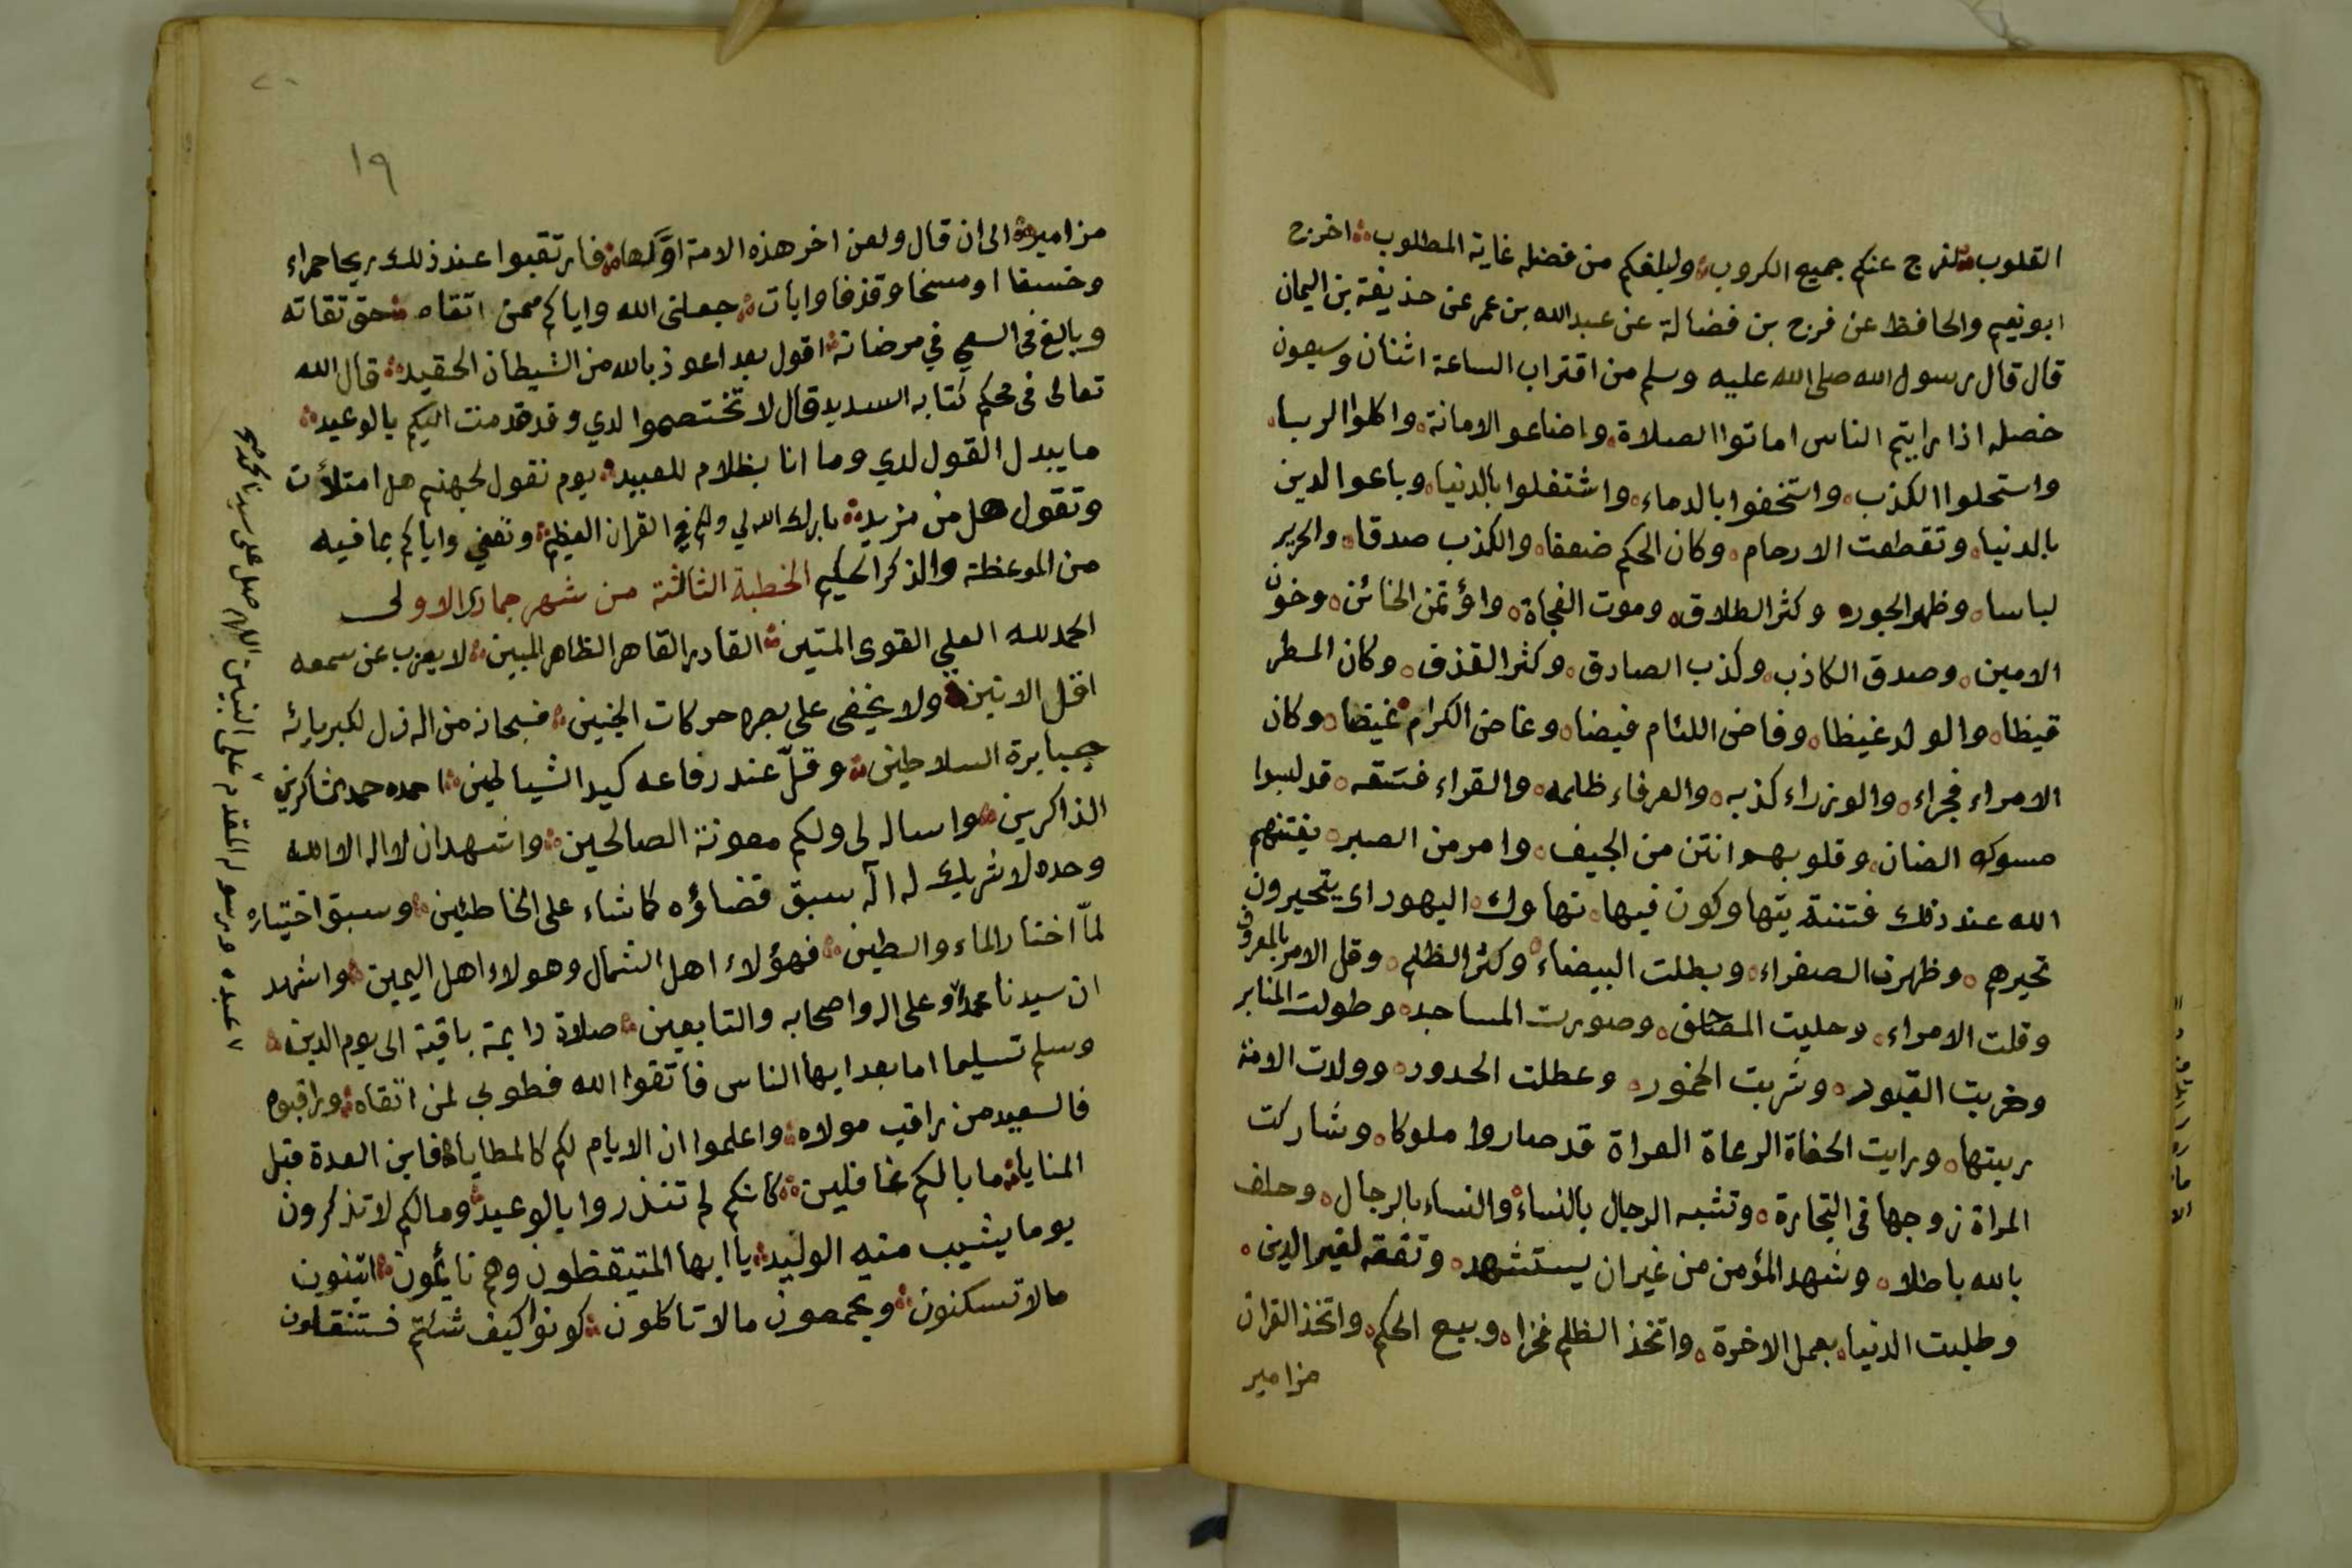 القلوب لتفرج عنكم جميع الكروب وليبلغكم من فضله غاية المطلوب اخرج
ابو نعيم والحافظ عن فرج بن فضالة عن عبد الله بن عمر عن حذيفة بن اليمان
قال قال رسول الله صلى الله عليه وسلم من اقتراب الساعة اثنان وسبعون
خصله اذا رايتم الناس اماتوا الصلاة واضاعو الامانة واكلوا الربا
واستحلوا الكذب واستخفوا بالدماء واشتغلوا بالدنيا وباعوا الدين
بالدنيا وتقطعت الارحام وكان الحكم ضعفا والكذب صدقا والحرير
لباسا وظهر الجور وكثر الطلاق وموت الفجاة واؤتمن الخائن وخون
الامين وصدق الكاذب وكذب الصادق وكثر القذف وكان المطر
قيظا والولد غيظا وفاض اللئام فيضا وغاض الكرام غيضا وكان
الامراء فجراء والوزراء كذبه والعرفاء ظلمه والقراء فسقه قد لبسوا
مسوك الضان وقلوبهم انتن من الجيف وامر من الصبر يفتنهم
الله عند ذلك فتنة يتهاوكون فيها تهاوك اليهود اى يتحيرون
تحيرهم وظهرت الصفراء وبطلت البيضاء وكثر الظلم وقل الامر بالمعروف
وقلت الامراء وحليت المصاحف وصورت المساجد وطولت المنابر
وخربت القبور وشربت الخمور وعطلت الحدور وولدت الامة
ربيتها ورايت الحفاة الرعاة العراة قد صاروا ملوكا وشاركت
المراة زوجها فى التجارة وتشبه الرجال بالنساء والنساء بالرجال وحلف
بالله باطلا وشهد المؤمن من غير ان يستشهد وتفقه لغير الدين
وطلبت الدنيا بعمل الاخرة واتخذ الظلم فخرا وبيع الحكم واتخذ القران
مزامير
١٩
مزامير الى ان قال ولعن اخر هذه الامة اولها فارتقبوا عند ذلك ريحا حمراء
وخسفا او مسخا وقذفا وايات جعلنى الله واياكم ممن اتقاه حق تقاته
وبالغ فى السعي في مرضاته اقول بعد اعوذ بالله من الشيطان الحقيد قال الله
تعالى فى محكم كتابه السديد قال لا تختصموا لدي وقد قدمت اليكم بالوعيد
ما يبدل القول لدي وما انا بظلام للعبيد يوم نقول لجهنم هل امتلأت
وتقول هل من مزيد بارك الله لي ولكم في القران العظيم ونفعني واياكم بما فيه
من الموعظة والذكر الحكيم الخطبة الثالثة من شهر جمادى الاولى
الحمد لله العلي القوى المتين القادر القاهر الظاهر المبين لا يعزب عن سمعه
اقل الانين ولا يخفى على بصره حركات الجنين فسبحانه من اله ذل لكبريائه
جبابرة السلاطين وقلّ عند دفاعه كيد الشياطين احمده حمد الشاكرين
الذاكرين واساله لى ولكم معونة الصالحين واشهد ان لا اله الا الله
وحده لا شريك له اله سبق قضاؤه كما شاء على الخاطئين وسبق اختياره
لمّا اختار الماء والطين فهؤلاء اهل الشمال وهولاء اهل اليمين واشهد
ان سيدنا محمدا وعلى اله واصحابه والتابعين صلاة دايمة باقية الى يوم الدين
وسلم تسليما اما بعد ايها الناس فاتقوا الله فطوبى لمن اتقاه وراقبوه
فالسعيد من راقب مولاه واعلموا ان الايام لكم كالمطايا فاين العدة قبل
المنايا ما بالكم غافلين كانكم لم تنذروا بالوعيد ومالكم لا تذكرون
يوما يشيب منه الوليد يا ايها المتيقظون وهم نايمون اتبنون
مالا تسكنون وتجمعون مالا تاكلون كونوا كيف شئتم فستنقلون
عبده ورسوله المقدم على النبيين اللهم صل على سيدنا محمد